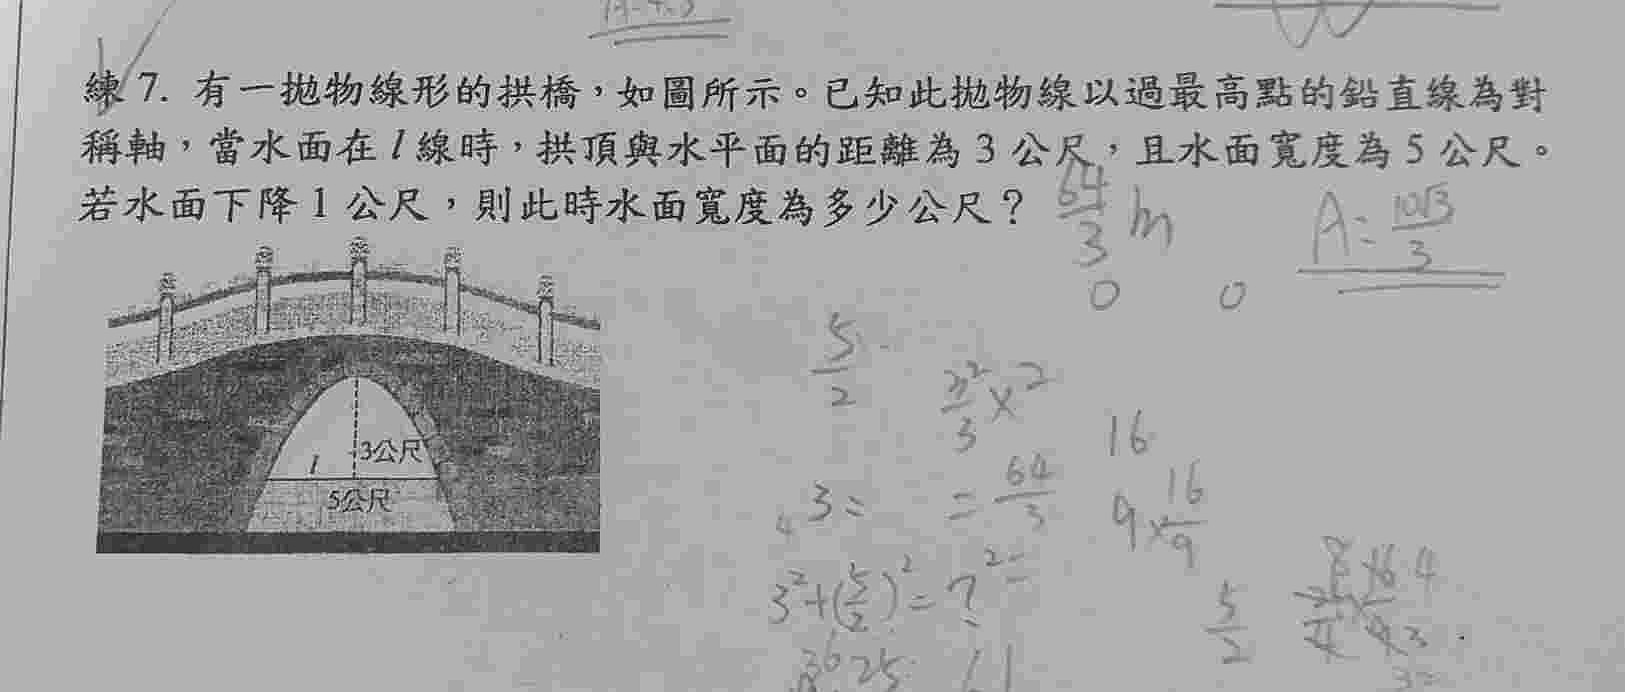 練 7. 有一拋物線形的拱橋，如圖所示。已知此拋物線以過最高點的鉛直線為對
稱軸，當水面在 l 線時，拱頂與水平面的距離為 3 公尺，且水面寬度為 5 公尺。
若水面下降 1 公尺，則此時水面寬度為多少公尺？
64/3 m
A = 10√3/3
0 0
l
3公尺
5公尺
5/2
×2
3
16
3 =
= 64/3
9×16/9
4
3²+(5/2)² = ?² =
5/2
36 25 61